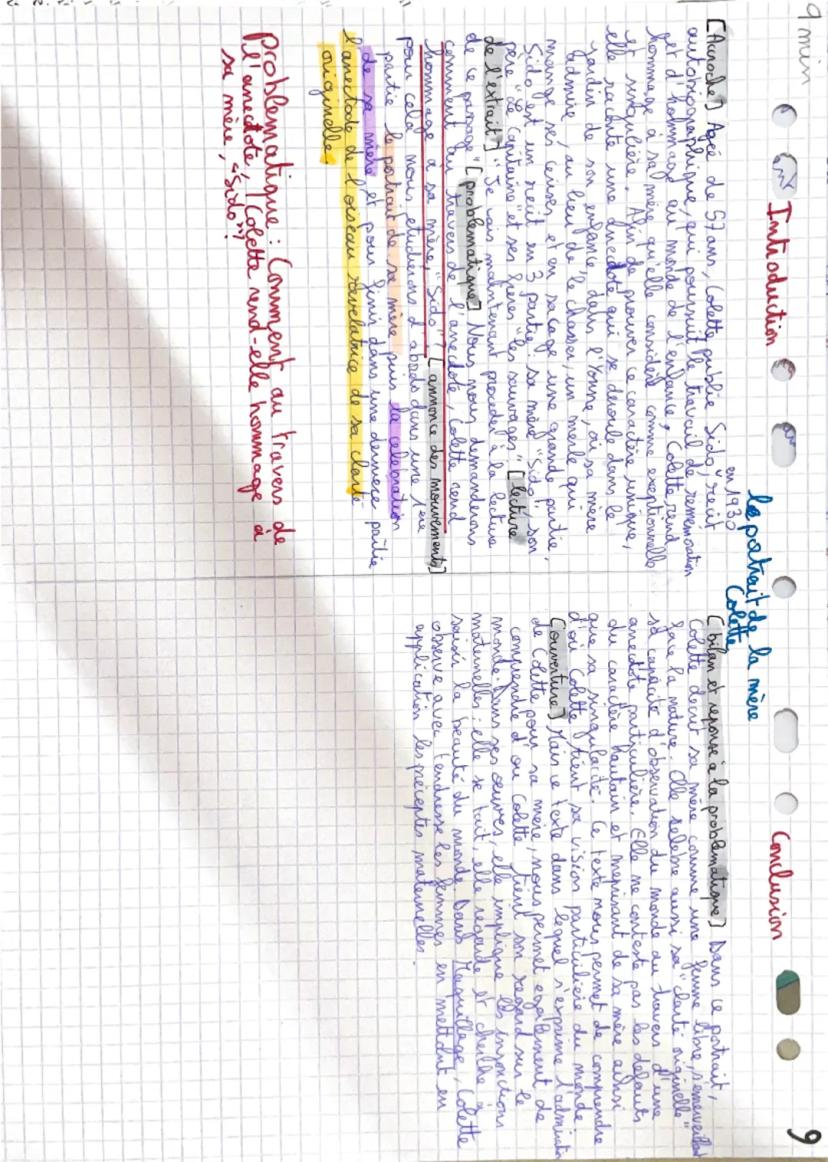 9 min
9
le portrait de la mère
Colette
Introduction
[Accroche] Agée de 57 ans, Colette publie Sido, récit
en 1930
autobiographique, qui poursuit le travail de remémoration
et d'hommage au monde de l'enfance, Colette rend
hommage à sa mère qu'elle considère comme exceptionnelle
et singulière. Afin de prouver ce caractère unique,
elle raconte une anecdote qui se déroule dans le
jardin de son enfance, dans l'Yonne, où sa mère
admire, au lieu de le chasser, un merle qui
mange ses cerises et en sacage une grande partie,
Sido est un récit en 3 partie : sa mère "Sido" son
père "Le Capitaine" et ses frères "les sauvages". [lecture
de l'extrait] "Je vais maintenant procéder à la lecture
de ce passage" [problematique] Nous nous demanderons
comment au travers de l'anecdote, Colette rend
hommage à sa mère, "Sido"? [annonce des mouvements]
pour cela nous étudierons d'abords dans une 1ère
partie le portrait de sa mère puis la célébration
de sa mère et pour finir dans une dernière partie
l'anectode de l'oiseau révélatrice de sa clarté
originelle.
Problematique : Comment au travers de
l'anecdote, Colette rend-elle hommage à
sa mère, "Sido"?
Conclusion
[bilan et reponse à la problematique] Dans ce portrait,
Colette decrit sa mère comme une femme libre, émerveillée
face la nature. Elle célèbre aussi sa "clarté originelle"
sa capacité d'observation du monde au travers d'une
anecdote particulière. Elle ne conteste pas les defauts
du caractère hautain et meprisant de sa mère ainsi
que sa singularité. Ce texte nous permet de comprendre
d'où Colette tient sa vision particulière du monde.
[ouverture] Mais ce texte dans lequel s'exprime l'admiration
de Colette pour sa mère, nous permet egalement de
comprendre d'ou Colette tient son regard sur le
monde. Dans ses oeuvres, elle implique les injonctions
maternelles : elle se tait, elle regarde et cherche à
saisir la beauté du monde. Dans Maquillage, Colette
observe avec tendresse les femmes en mettant en
application les préceptes maternelles.